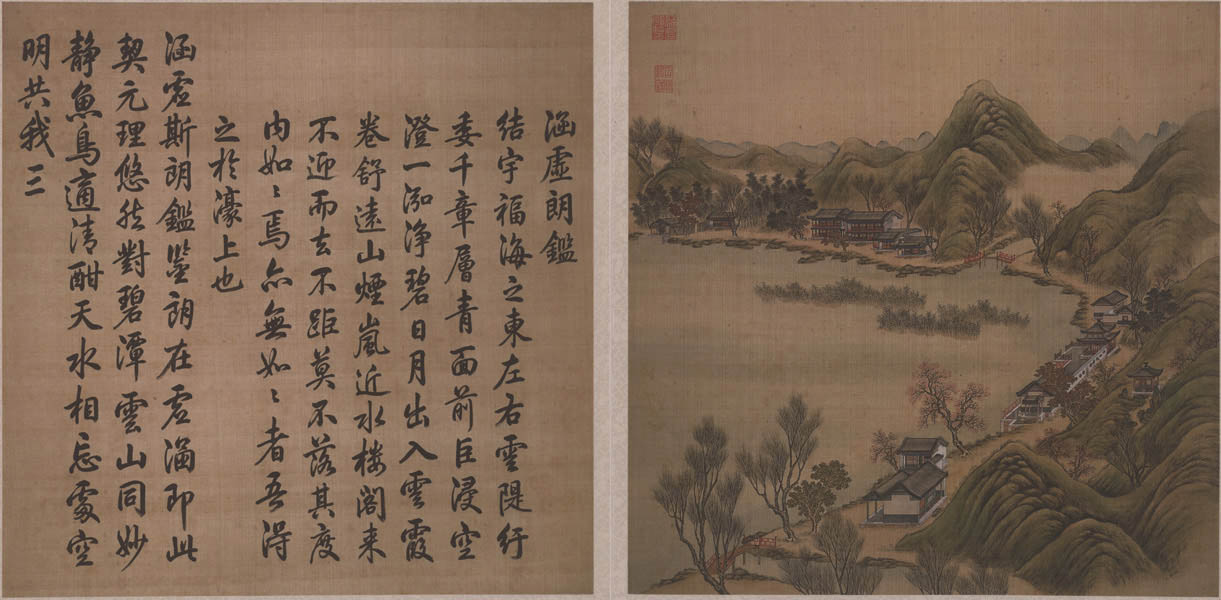 涵虛朗鑑
結宇福海之東左右雲隄紆
委千章層青面前巨浸空
澄一泓淨碧日月出入雲霞
卷舒遠山煙嵐近水樓閣来
不迎而去不距莫不落其度
內如〻焉亦無如〻者吾得
之於濠上也
涵虗斯朗鑑鑒朗在虗涵即此
契元理悠然對碧潭雲山同妙
靜魚鳥適清酣天水相忘處空
明共我三